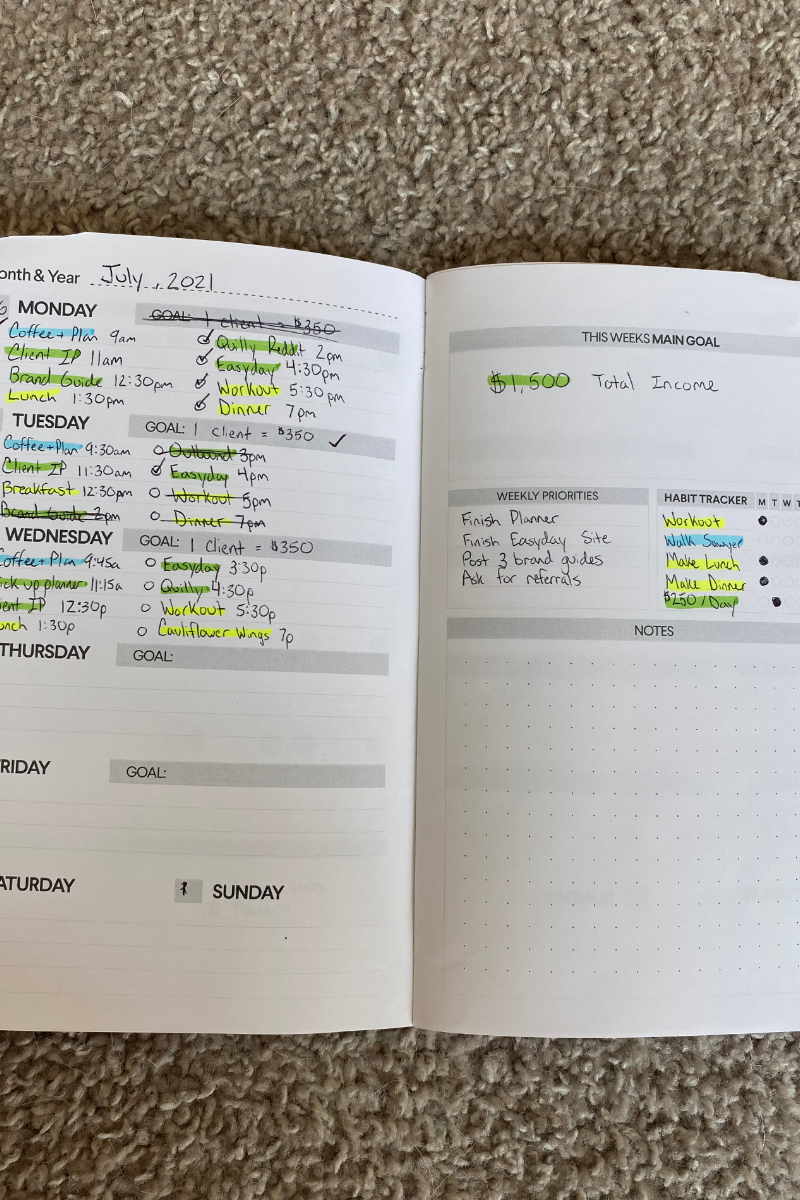 onth & Year July, 2021
6 MONDAY
GOAL: 1 client = $350
Coffee + Plan 9am
Client IP 11am
Brand Guide 12:30pm
Lunch 1:30pm
Quilly Reddit 2pm
Easyday 4:30pm
Workout 5:30pm
Dinner 7pm
TUESDAY
GOAL: 1 client = $350
Coffee+Plan 9:30am
Client IP 11:30am
Breakfast 12:30pm
Brand Guide 2pm
Outbound 3pm
Easyday 4pm
Workout 5pm
Dinner 7pm
WEDNESDAY
GOAL: 1 Client = $350
offee + Plan 9:45a
ick up planner 11:15a
ient IP 12:30p
unch 1:30p
Easyday 3:30p
Quilly 4:30p
Workout 5:30p
Cauliflower Wings 7p
THURSDAY
GOAL:
RIDAY
GOAL:
ATURDAY
1 SUNDAY
THIS WEEKS MAIN GOAL
$1,500 Total Income
WEEKLY PRIORITIES
Finish Planner
Finish Easyday Site
Post 3 brand guides
Ask for referrals
HABIT TRACKER M T W T
Workout
Walk Sawyer
Make Lunch
Make Dinner
$250/Day
NOTES